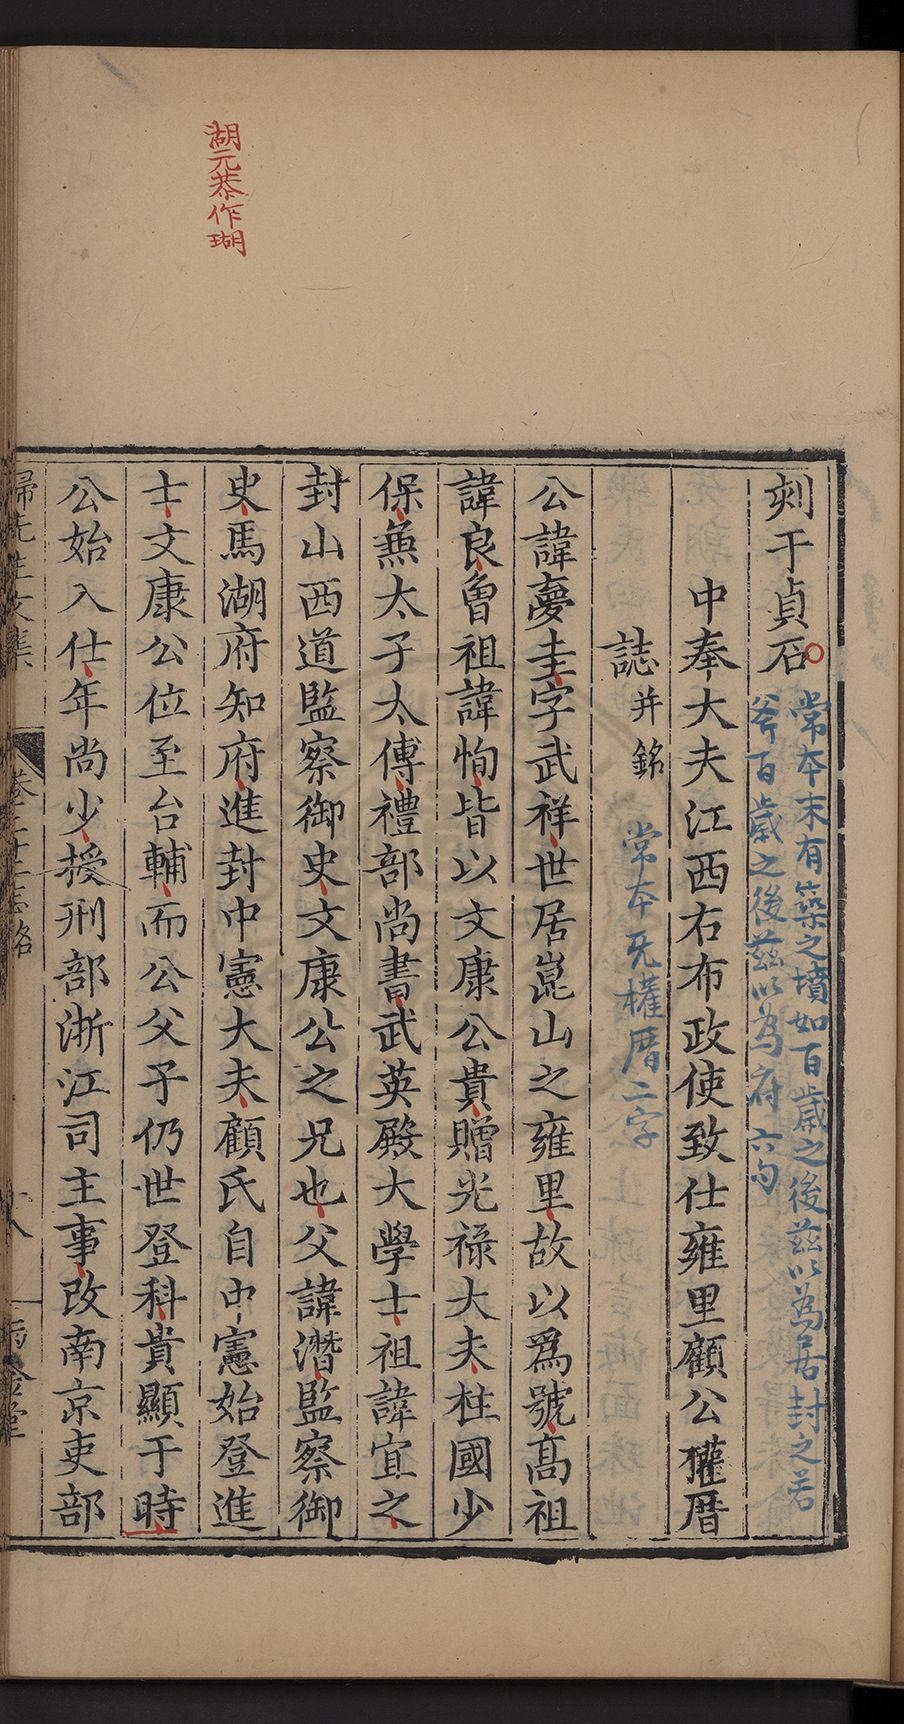 湖元恭作瑚
刻于貞石
常本末有築之墳如百歲之後茲以為居封之若
斧百歲之後茲以為府六句
中奉大夫江西右布政使致仕雍里顧公權厝
誌并銘
常本无權厝二字
公諱夢圭字武祥世居崑山之雍里故以爲號高祖
諱良曾祖諱恂皆以文康公貴贈光祿大夫柱國少
保兼太子太傅禮部尚書武英殿大學士祖諱宜之
封山西道監察御史文康公之兄也父諱潛監察御
史馬湖府知府進封中憲大夫顧氏自中憲始登進
士文康公位至台輔而公父子仍世登科貴顯于時
公始入仕年尚少授刑部浙江司主事改南京吏部
歸先生文集 卷二十二 志銘